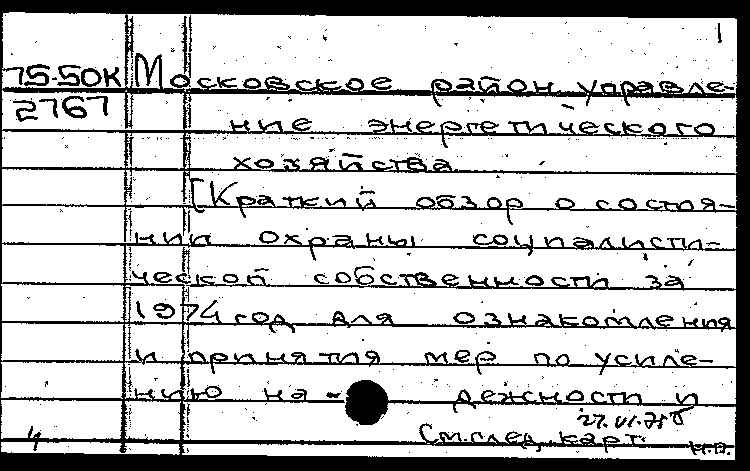 1
75-50К Московское район. управле-
2767 ние энергетического
хозяйства
[Краткий обзор о состоя-
нии охраны социалисти-
ческой собственности за
1974 год для ознакомления
и принятия мер по усиле-
нию на- дежности и
27.VI.75
См. след. карт.